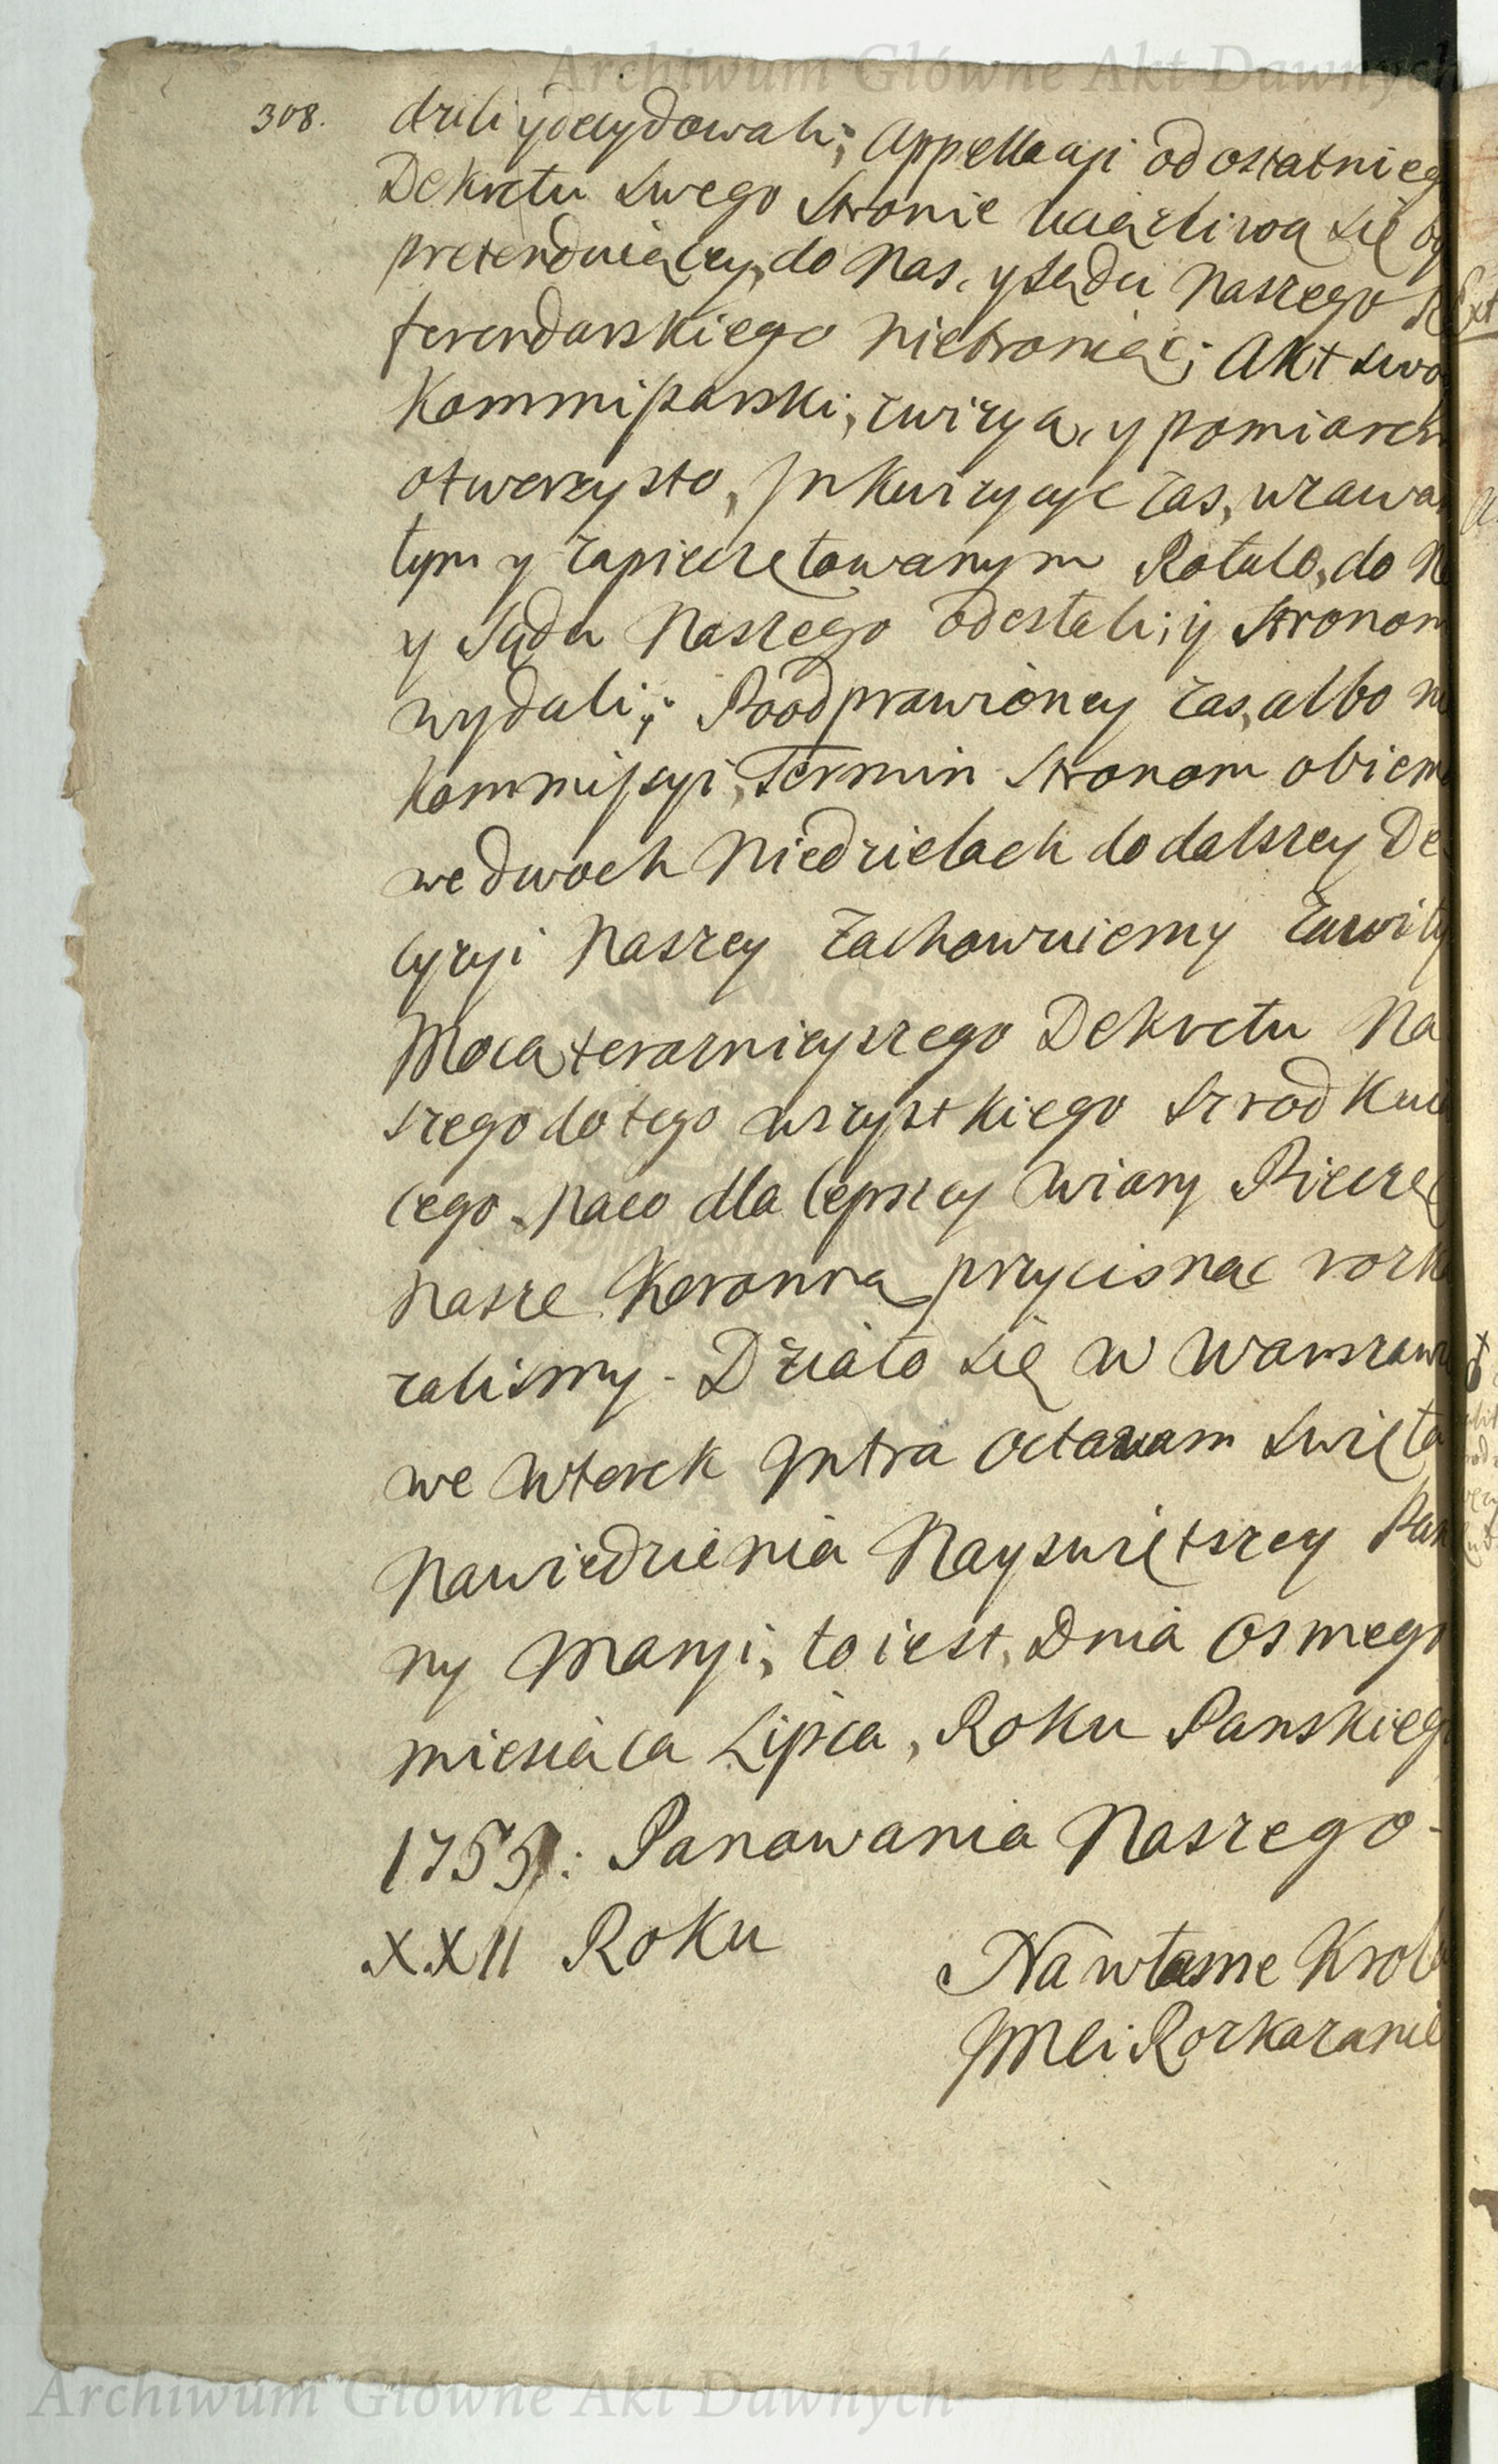 Archiwum Główne Akt Dawnych
308.
dzili y decydowali; Appellacyi od ostatnieg
Dekretu swego stronie uciążliwą się by
pretenduiącey, do Nas, y Sądu Naszego Re
ferendarskiego niebroniąc; Akt swoy
Kommissarski, z wizyą, y pomiarem
otworzysto, Inkwizycye zas, w zawar
tym y zapieczętowanym Rotule, do N
y Sądu Naszego odesłali; y stronom
wydali; Po odprawioney zas, albo ni
Kommissyi, Termin Stronom obiem
we dwoch Niedzielach do dalszey De
cyzyi Naszey zachowuiemy zawity
Mocą teraznieyszego Dekretu Na
szego do tego wszystkiego srzodkuią
cego. Na co dla lepszey wiary Pieczęć
Nasze Koronną przycisnąć rozk
zalismy. Działo się w Warszawi
we wtorek Intra Octavam Swięta
Nawiedzienia Nayswiętszey Pan
ny Maryi, to iest, Dnia Osmego
miesiąca Lipca, Roku Panskiego
1755: Panowania Naszego -
XXII Roku
Na własne Krola
JMci Rozkazanie
Archiwum Główne Akt Dawnych